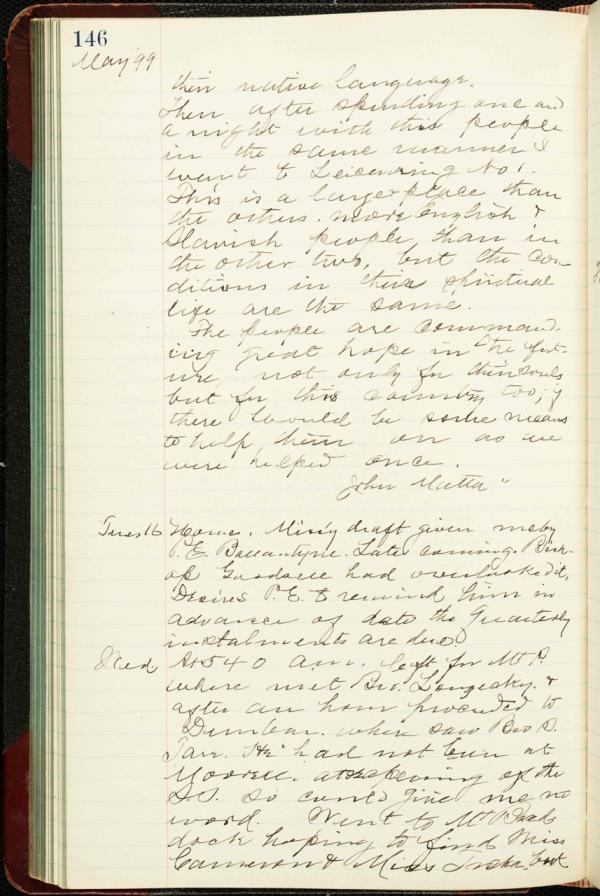 146
May '99
their native language.
Then after spending one and
a night with this people
in the same manner I
went to Leisenring No 1.
This is a larger place than
the others. more English &
Slavish people than in
the other two, but the con-
ditions in their spiritual
life are the same.
The people are command-
ing great hope in the fut-
ure, not only for their souls
but for this country too; if
there would be some means
to help them on as we
were helped once.
John Matta "
Tues 16 Home. Miss'y draft given me by
P. E. Ballantyne. Late coming. Bish-
op had overlooked it,
Desires P. E. to remind him in
advance of date the Quarterly
instalments are due.
Wed. At 5 40 a.m. left for Mt. P.
where met Bro. &
after an hour proceeded to
Dunbar. where saw Bro S.
Tarr. He had not been at
at opening of the
S.S. so could give me no
word. Went to Mt
dock hoping to find Miss
Cameron & Miss but